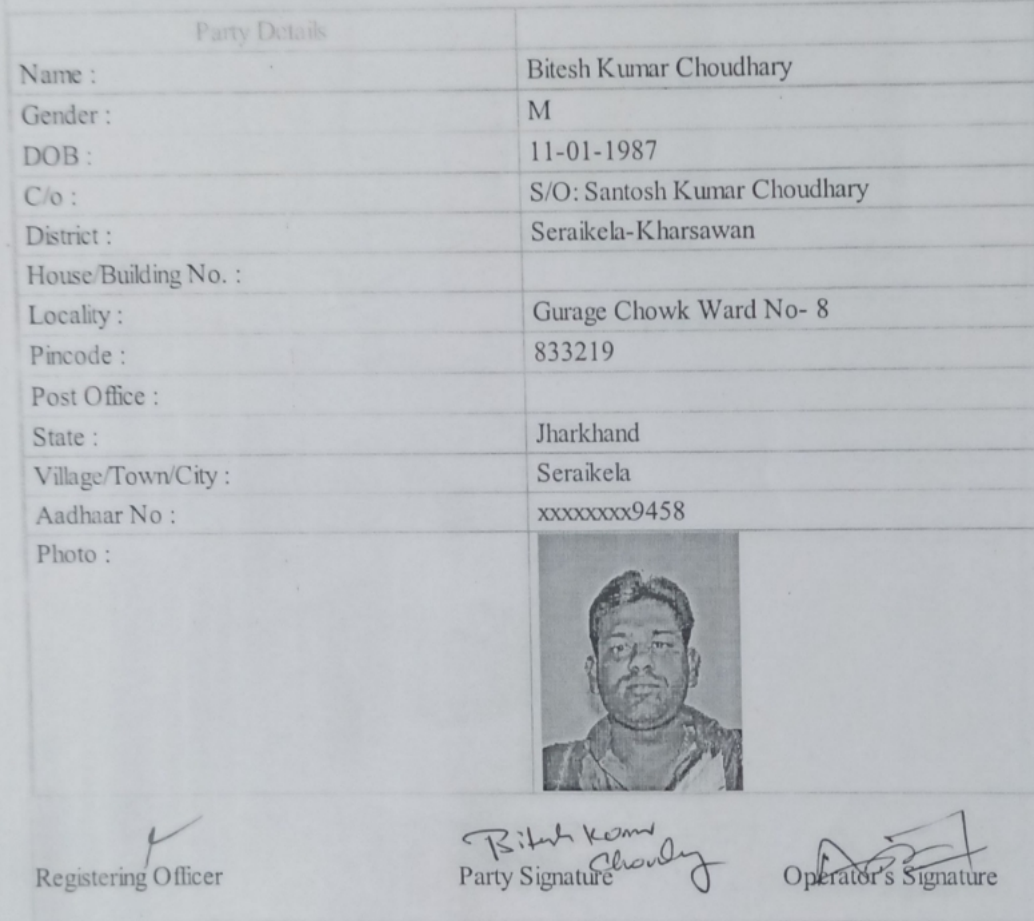 Party Details
Name : Bitesh Kumar Choudhary
Gender : M
DOB : 11-01-1987
C/o : S/O: Santosh Kumar Choudhary
District : Seraikela-Kharsawan
House/Building No. :
Locality : Gurage Chowk Ward No- 8
Pincode : 833219
Post Office :
State : Jharkhand
Village/Town/City : Seraikela
Aadhaar No : xxxxxxxx9458
Photo :
Bitesh Kumar
Registering Officer Party Signature Operator's Signature